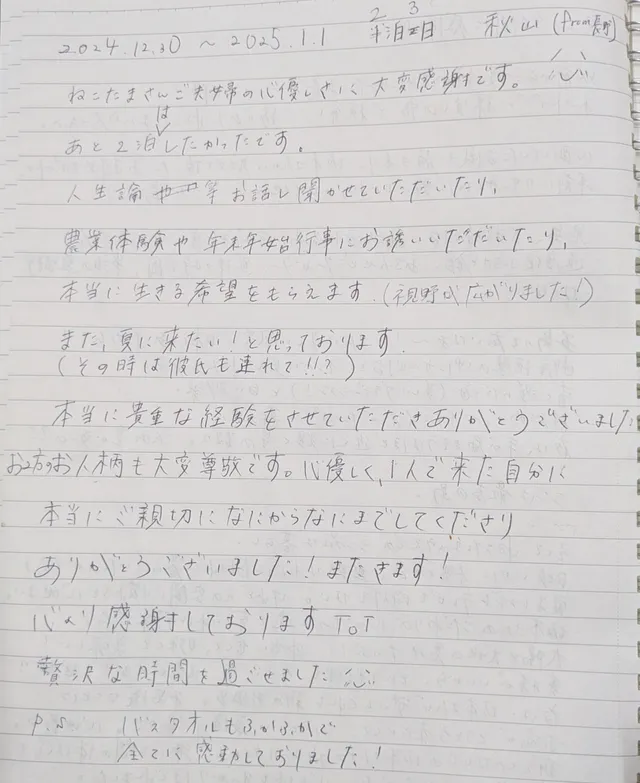 2024.12.30 ~ 2025.1.1 2泊3日 秋山 (from長野)
ねこたまさんご夫婦の心優しさに大変感謝です。
あと2泊はしたかったです。
人生論等お話し聞かせていただいたり、
農業体験や年末年始行事にお誘いいただいたり、
本当に生きる希望をもらえます。(視野が広がりました!)
また、夏に来たい!と思っております。
(その時は彼氏も連れて!!?)
本当に貴重な経験をさせていただきありがとうございました
お2方のお人柄も大変尊敬です。心優しく、1人で来た自分に
本当にご親切になにからなにまでしてくださり
ありがとうございました!またきます!
心より感謝しております ToT
贅沢な時間を過ごせました
P.S バスタオルもふかふかで
全てに感動しておりました!